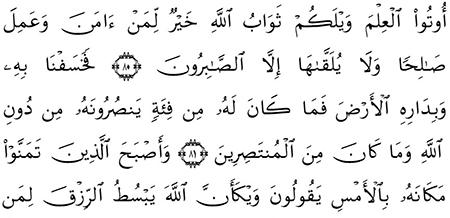 أُوتُوا۟ ٱلْعِلْمَ وَيْلَكُمْ ثَوَابُ ٱللَّهِ خَيْرٌ لِّمَنْ ءَامَنَ وَعَمِلَ
صَـٰلِحًا وَلَا يُلَقَّىٰهَا إِلَّا ٱلصَّـٰبِرُونَ ﴿٨٠﴾ فَخَسَفْنَا بِهِۦ
وَبِدَارِهِ ٱلْأَرْضَ فَمَا كَانَ لَهُۥ مِن فِئَةٍ يَنصُرُونَهُۥ مِن دُونِ
ٱللَّهِ وَمَا كَانَ مِنَ ٱلْمُنتَصِرِينَ ﴿٨١﴾ وَأَصْبَحَ ٱلَّذِينَ تَمَنَّوْا۟
مَكَانَهُۥ بِٱلْأَمْسِ يَقُولُونَ وَيْكَأَنَّ ٱللَّهَ يَبْسُطُ ٱلرِّزْقَ لِمَن